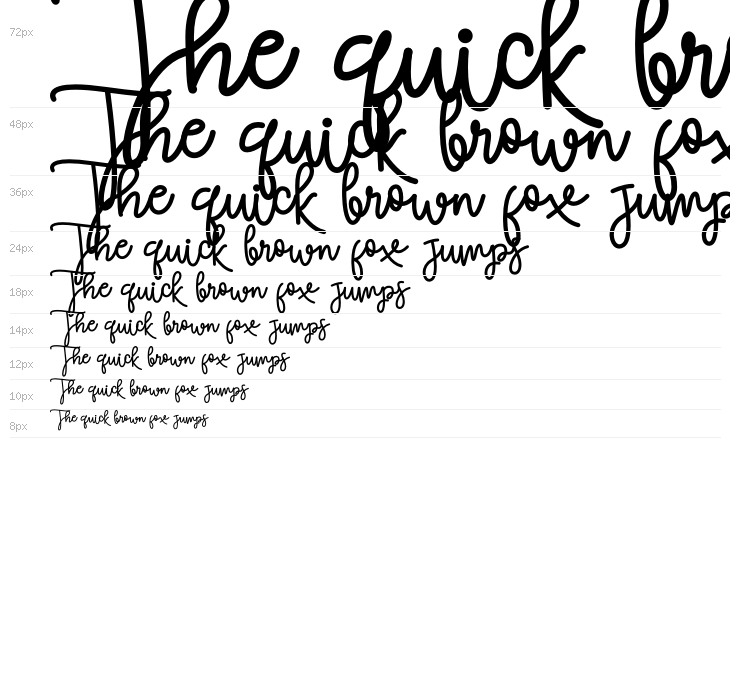 72px The quick br
48px The quick brown fox
36px The quick brown fox jump
24px The quick brown fox jumps
18px The quick brown fox jumps
14px The quick brown fox jumps
12px The quick brown fox jumps
10px The quick brown fox jumps
8px The quick brown fox jumps